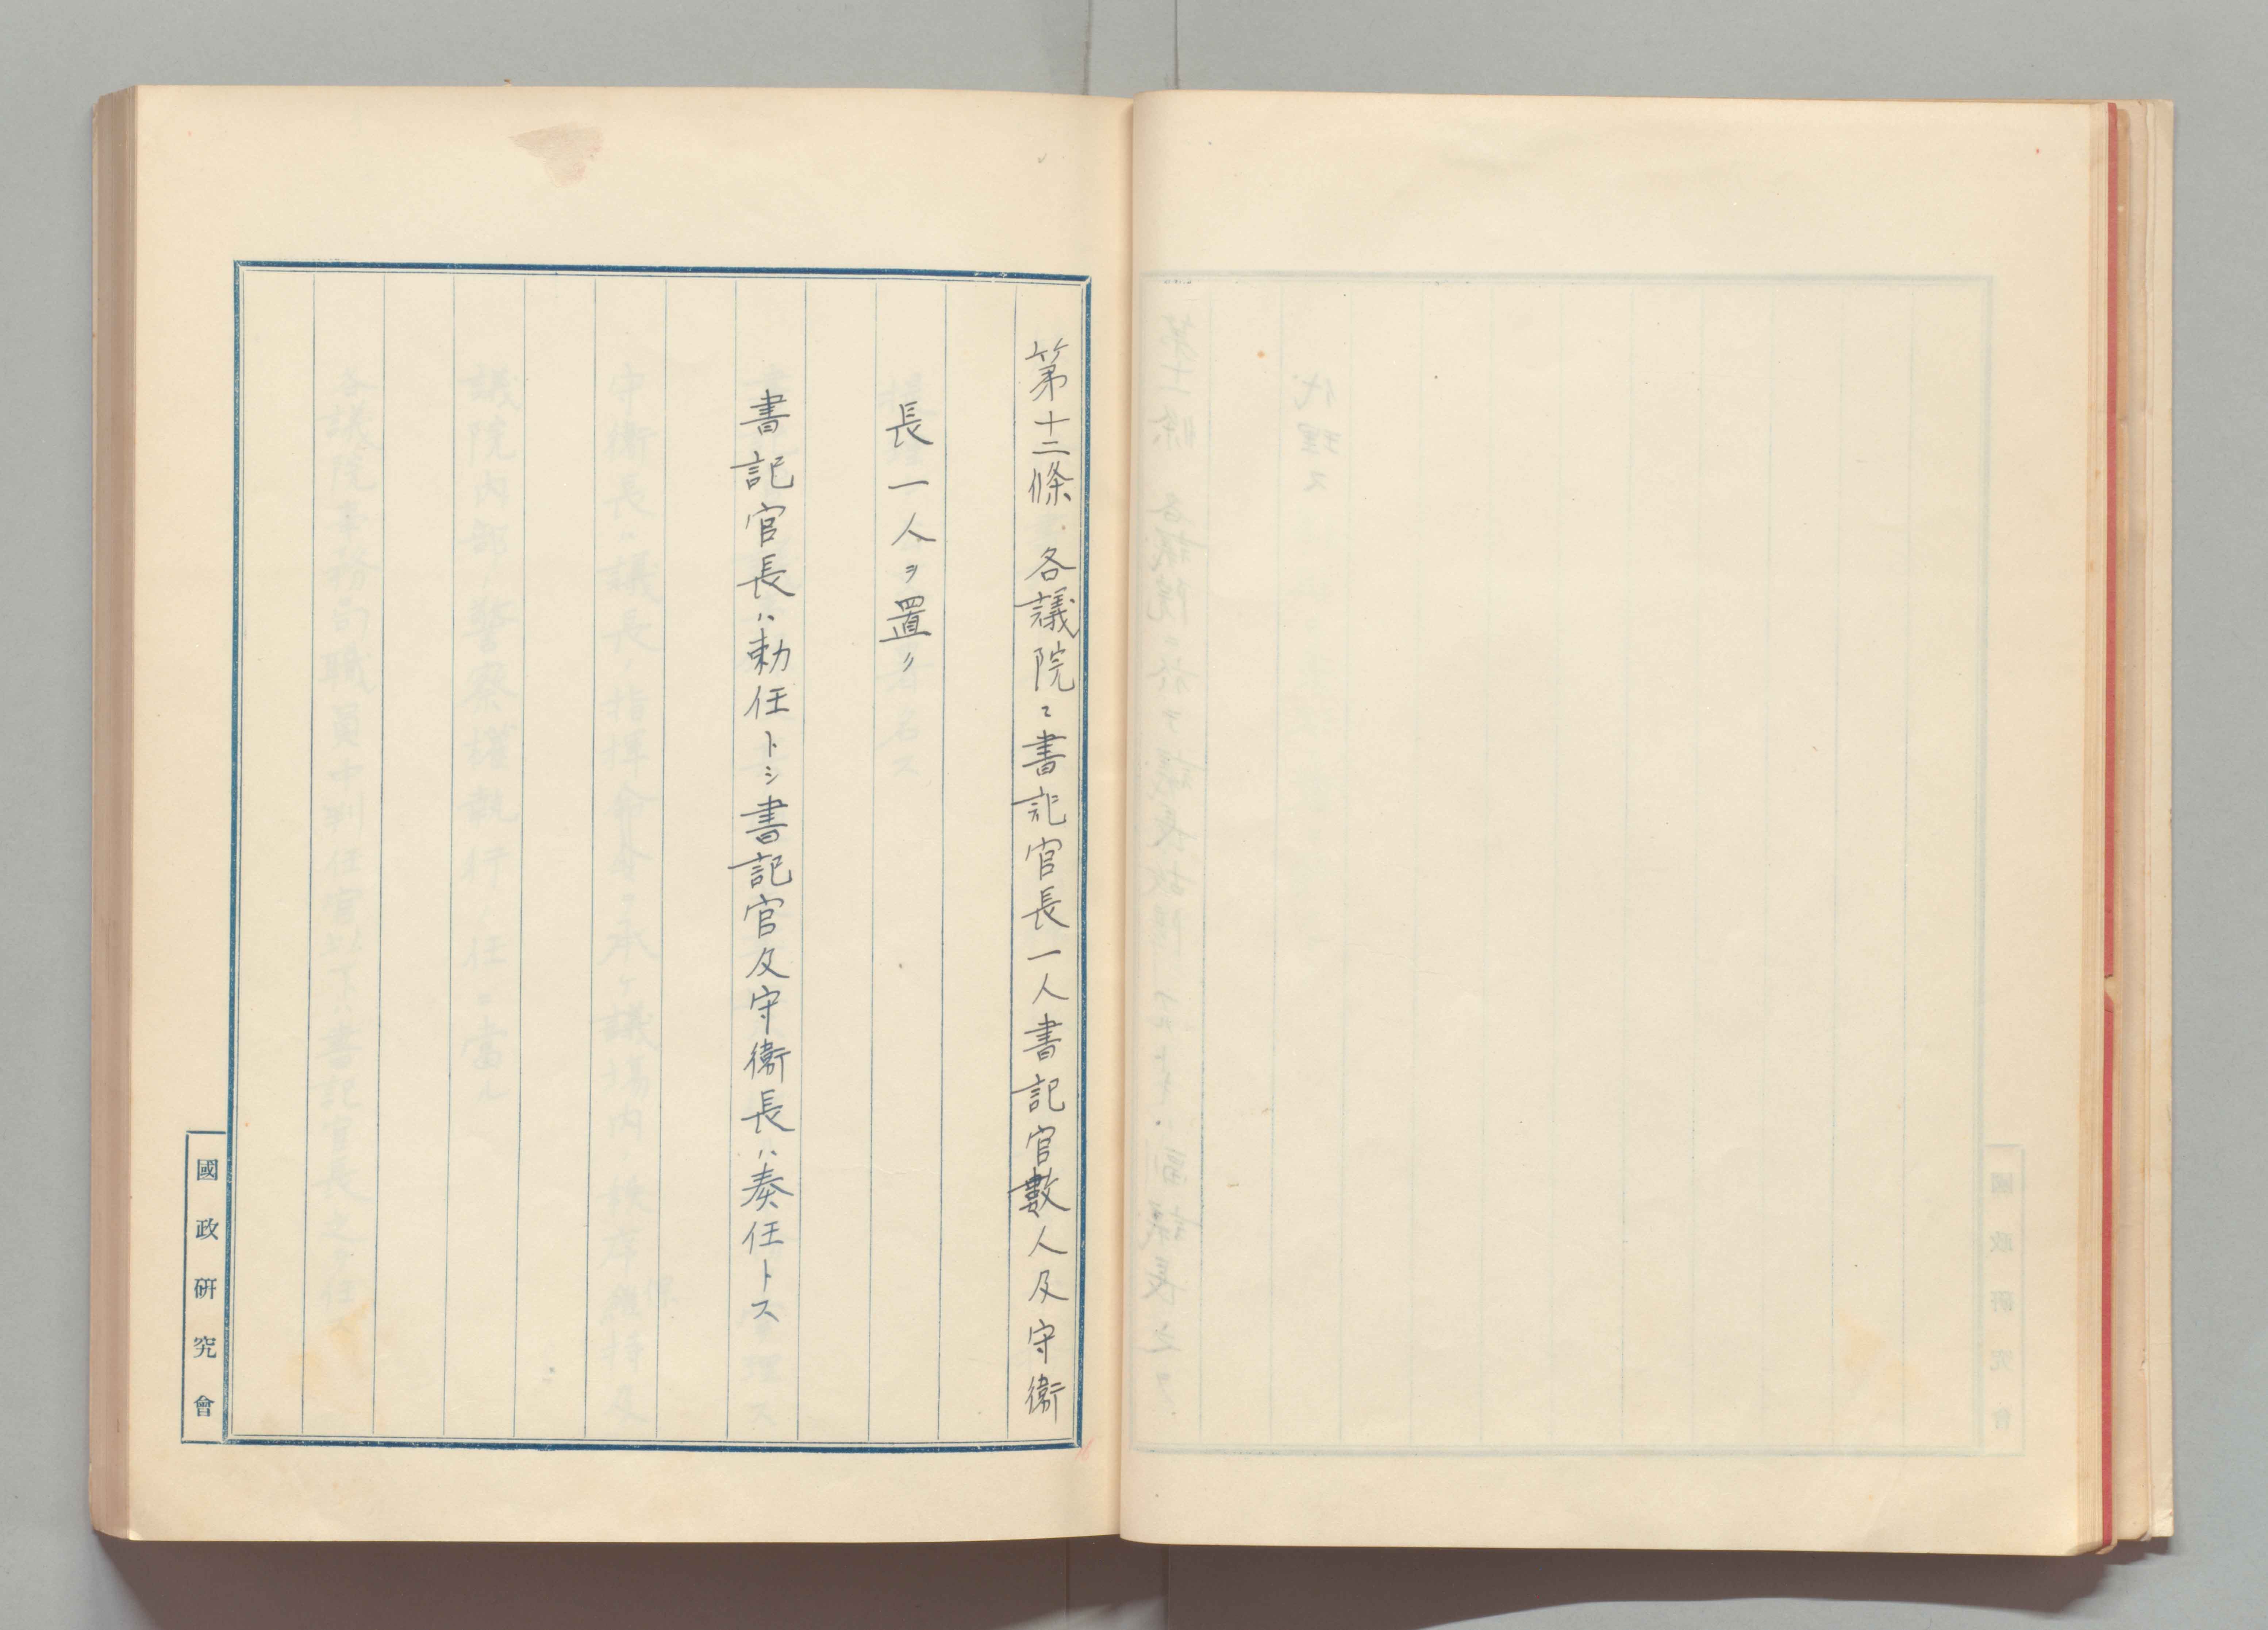 第十二條 各議院ニ書記官長一人書記官數人及守衞
長一人ヲ置ク
書記官長ハ勅任トシ書記官及守衞長ハ奏任トス
國政研究會